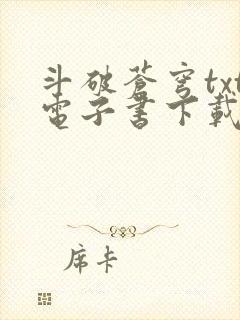 斗破蒼穹txt
電子書下載
席卡